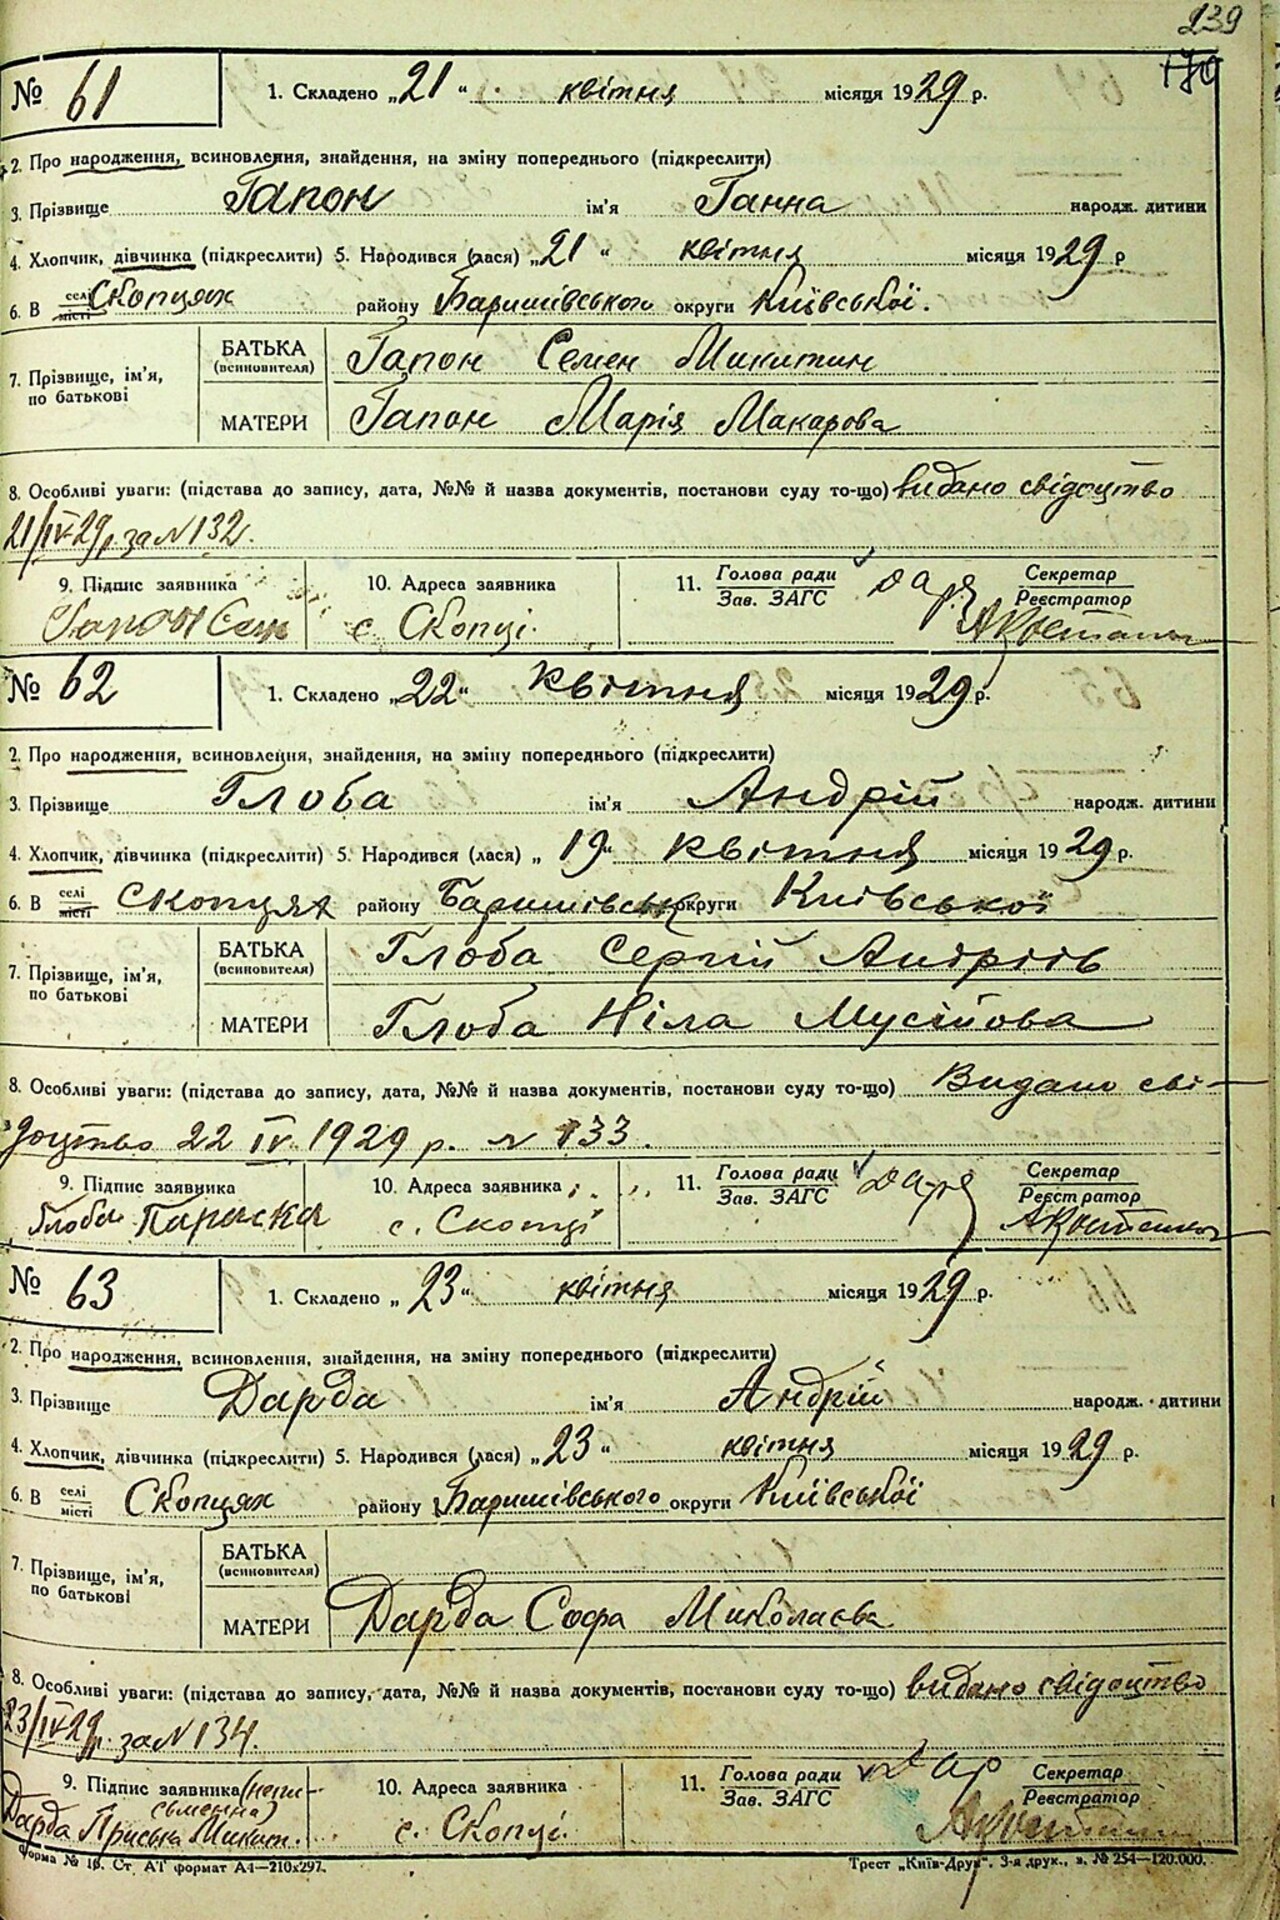 239
170
№ 61 1. Складено „21“ квітня місяця 1929 р.
2. Про народження, всиновлення, знайдення, на зміну попереднього (підкреслити)
3. Прізвище Гапон ім’я Ганна народж. дитини
4. Хлопчик, дівчинка (підкреслити) 5. Народився (лася) „21“ квітня місяця 1929 р
6. В селі місті Скопцях району Баришівського округи Київської.
7. Прізвище, ім’я, по батькові
БАТЬКА (всиновителя) Гапон Семен Микитин
МАТЕРИ Гапон Марія Макарова
8. Особливі уваги: (підстава до запису, дата, №№ й назва документів, постанови суду то-що) видано свідоцтво
21/IV-29р. за № 132.
9. Підпис заявника 10. Адреса заявника 11. Голова ради Зав. ЗАГС Секретар Реєстратор
Гапон Сем с. Скопці.
№ 62 1. Складено „22“ квітня місяця 1929 р.
2. Про народження, всиновлення, знайдення, на зміну попереднього (підкреслити)
3. Прізвище Глоба ім’я Андрій народж. дитини
4. Хлопчик, дівчинка (підкреслити) 5. Народився (лася) „19“ квітня місяця 1929 р.
6. В селі місті Скопцях району Баришівськ округи Київської
7. Прізвище, ім’я, по батькові
БАТЬКА (всиновителя) Глоба Сергій Андріїв
МАТЕРИ Глоба Ніла Мусійова
8. Особливі уваги: (підстава до запису, дата, №№ й назва документів, постанови суду то-що) Видано сві-
доцтво 22 IV. 1929 р. № 133.
9. Підпис заявника 10. Адреса заявника 11. Голова ради Зав. ЗАГС Секретар Реєстратор
Глоба Параска с. Скопці
№ 63 1. Складено „23“ квітня місяця 1929 р.
2. Про народження, всиновлення, знайдення, на зміну попереднього (підкреслити)
3. Прізвище Дарда ім’я Андрій народж. дитини
4. Хлопчик, дівчинка (підкреслити) 5. Народився (лася) „23“ квітня місяця 1929 р.
6. В селі місті Скопцях району Баришівського округи Київської
7. Прізвище, ім’я, по батькові
БАТЬКА (всиновителя)
МАТЕРИ Дарда Софа Миколаєва
8. Особливі уваги: (підстава до запису, дата, №№ й назва документів, постанови суду то-що) видано свідоцтво
23/IV-29р. за № 134.
9. Підпис заявника (непи- 10. Адреса заявника 11. Голова ради Зав. ЗАГС Секретар Реєстратор
сьменна)
Дарда Приська Микит. с. Скопці.
Форма № 10. Ст. АТ формат А4—210х297. Трест „Київ-Друк“. 3-я друк., з. № 254—120.000.